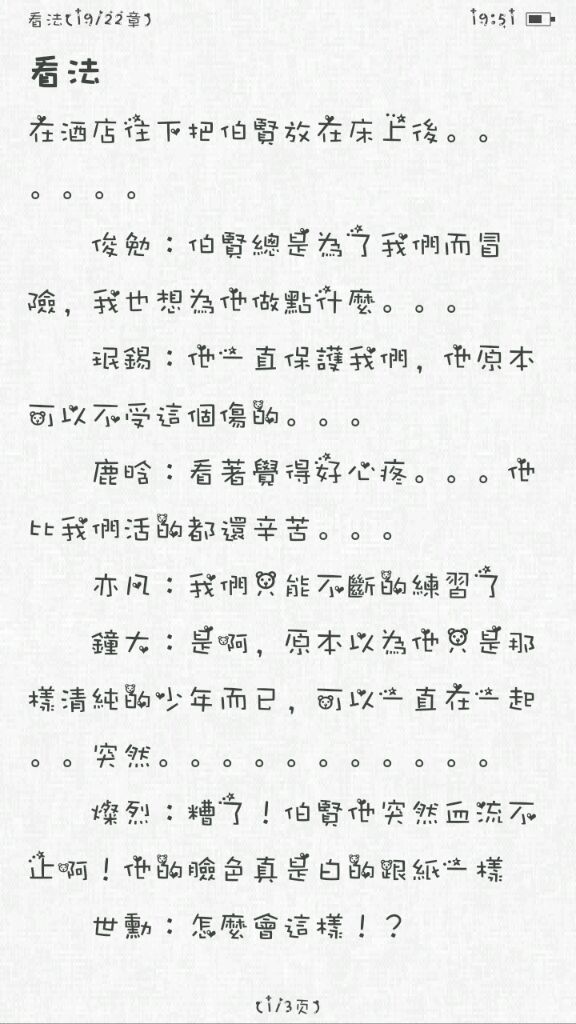 看法(19/22章)
19:51
看法
在酒店往下把伯賢放在床上後。。
。。。。
俊勉：伯賢總是為了我們而冒
險，我也想為他做點什麼。。。
珉錫：他一直保護我們，他原本
可以不受這個傷的。。。
鹿晗：看著覺得好心疼。。。他
比我們活的都還辛苦。。。
亦凡：我們只能不斷的練習了
鐘大：是啊，原本以為他只是那
樣清純的少年而已，可以一直在一起
。。突然。。。。。。。。。。。
燦烈：糟了！伯賢他突然血流不
止啊！他的臉色真是白的跟紙一樣
世勳：怎麼會這樣！？
(1/3页)